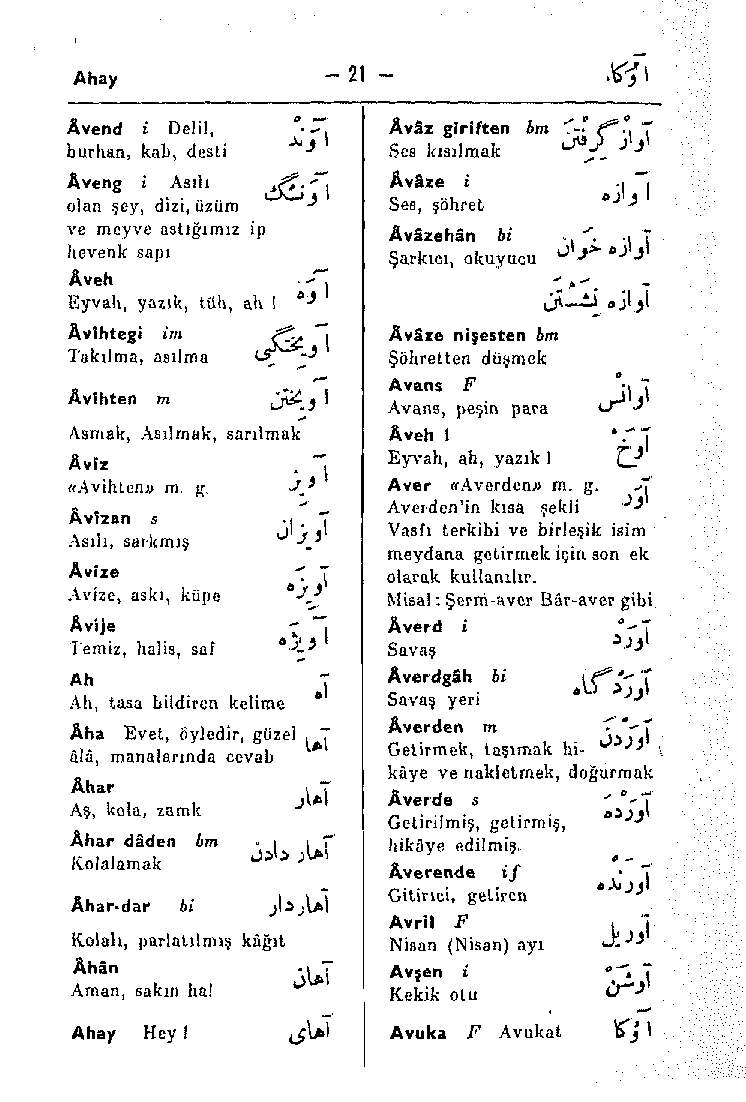 Ahay — 21 — آوُکا.
Âvend i Delil, آوَنْدْ
burhan, kab, desti
Âveng i Asılı آوَنْگ
olan şey, dizi, üzüm
ve meyve astığımız ip
hevenk sapı
Âveh آوَه
Eyvah, yazık, tüh, ah !
Âvihtegi im آویختگی
Takılma, asılma
Âvihten m آویختن
Asmak, Asılmak, sarılmak
Âviz آویز
«Avihten» m. g.
Âvîzan s آویزان
Asılı, sarkmış
Âvize آویزه
Avize, askı, küpe
Âvije آویژه
Temiz, halis, saf
Ah آه
Ah, tasa bildiren kelime
Âha Evet, öyledir, güzel آها
âlâ, manalarında cevab
Âhar آهار
Aş, kola, zamk
Âhar dâden bm آهار دادن
Kolalamak
Âhar-dar bi آهاردار
Kolalı, parlatılmış kâğıt
Âhân آهان
Aman, sakın ha!
Ahay Hey ! آهای
Âvâz giriften bm آواز گرفتن
Ses kısılmak
Âvâze i آوازه
Ses, şöhret
Âvâzehân bi آوازه خوان
Şarkıcı, okuyucu
آوازه نشستن
Âvâze nişesten bm
Şöhretten düşmek
Avans F آوانس
Avans, peşin para
Âveh ! آوخ
Eyvah, ah, yazık !
Aver «Averden» m. g. آور
Averden'in kısa şekli
Vasfı terkibi ve birleşik isim
meydana getirmek için son ek
olarak kullanılır.
Misal : Şerm-aver Bâr-aver gibi
Âverd i آورد
Savaş
Âverdgâh bi آوردگاه
Savaş yeri
Âverden m آوردن
Getirmek, taşımak hi-
kâye ve nakletmek, doğurmak
Âverde s آورده
Getirilmiş, getirmiş,
hikâye edilmiş.
Âverende if آورنده
Gitirici, getiren
Avril F آوریل
Nisan (Nisan) ayı
Avşen i آوشن
Kekik otu
Avuka F Avukat آوُکا